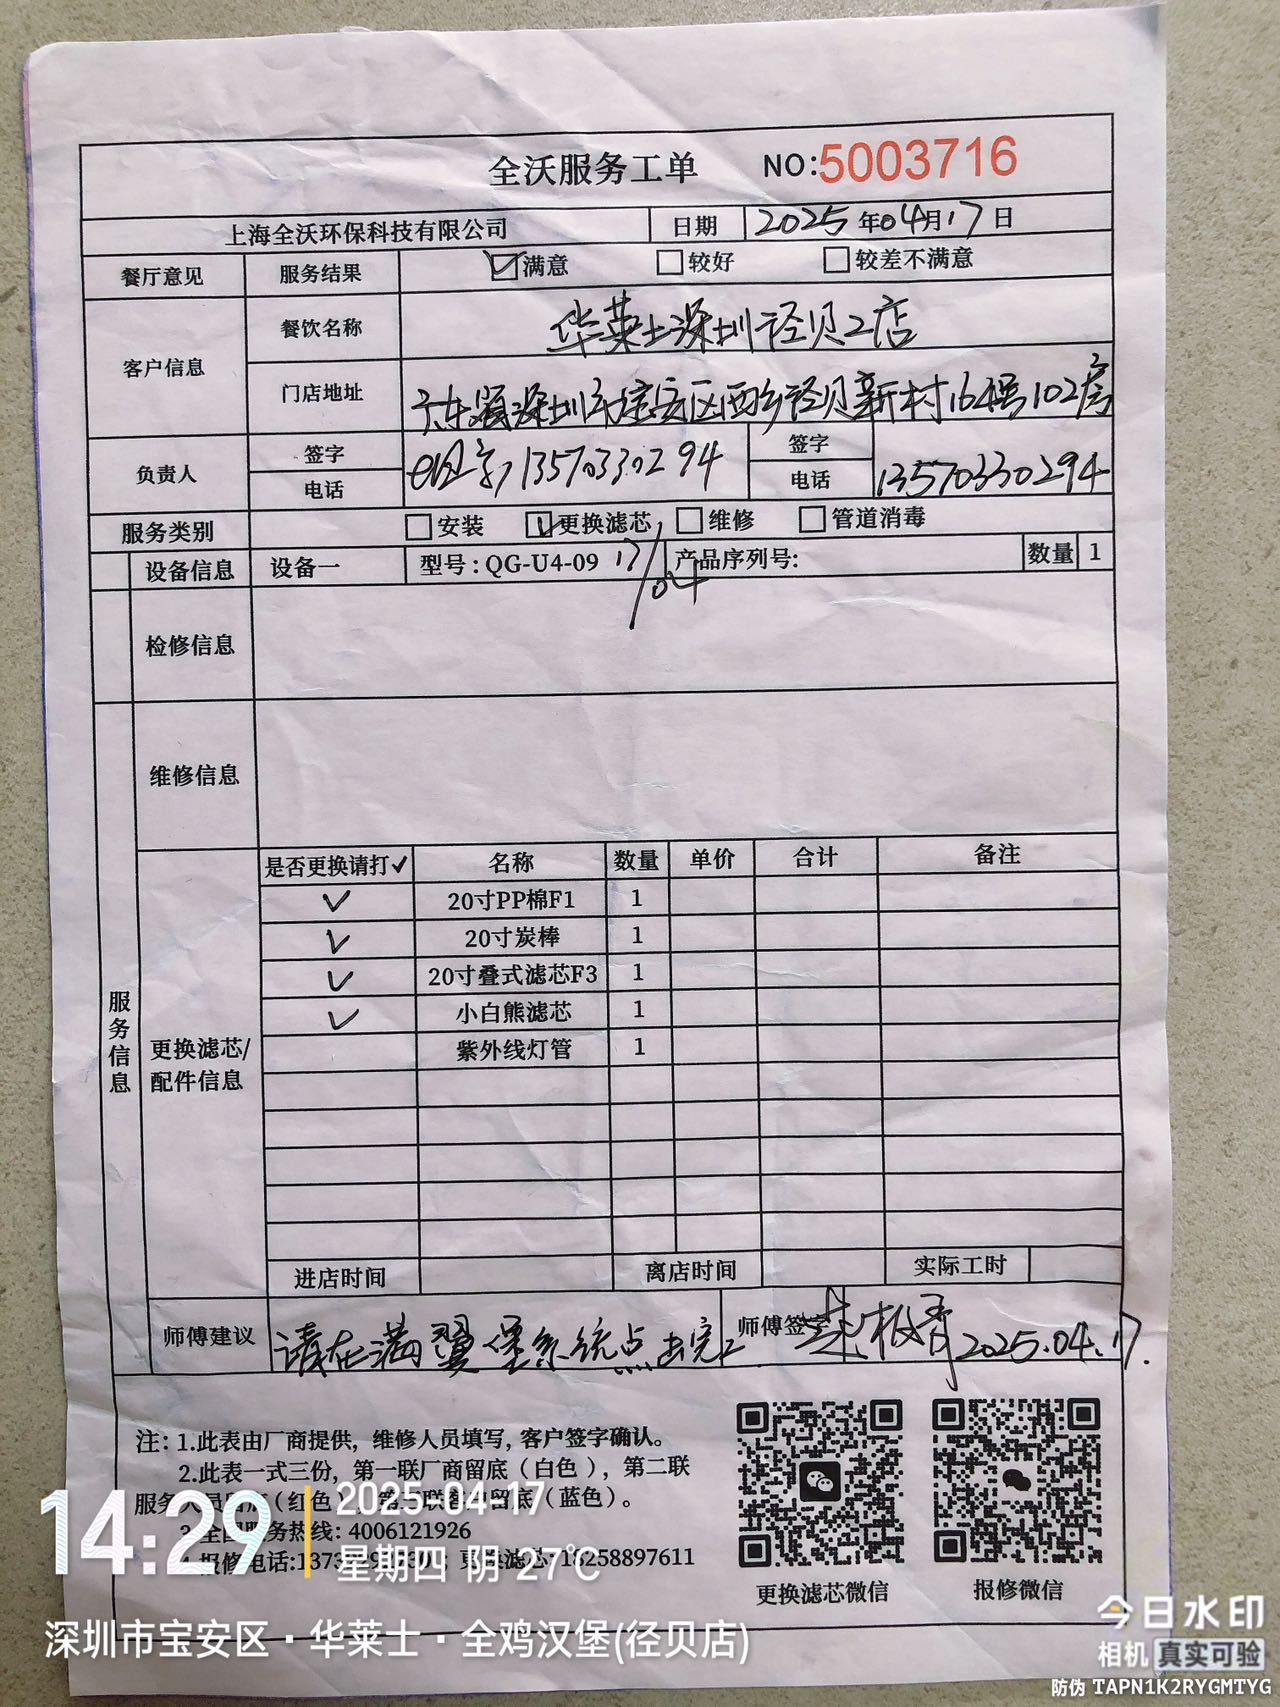 全沃服务工单 NO:5003716
上海全沃环保科技有限公司 日期 2025年04月17日
餐厅意见 服务结果 ☑满意 □较好 □较差不满意
客户信息 餐饮名称 华莱士深圳径贝2店
门店地址 广东省深圳市宝安区西乡径贝新村164号102房
负责人 签字 13570330294 签字
电话 电话 13570330294
服务类别 □安装 ☑更换滤芯 □维修 □管道消毒
设备信息 设备一 型号:QG-U4-09 17/04 产品序列号: 数量 1
检修信息
维修信息
服务信息
更换滤芯/
配件信息
是否更换请打✓ 名称 数量 单价 合计 备注
✓ 20寸PP棉F1 1
✓ 20寸炭棒 1
✓ 20寸叠式滤芯F3 1
✓ 小白熊滤芯 1
紫外线灯管 1
进店时间 离店时间 实际工时
师傅建议 请在满翼堡系统点击完工 师傅签字 2025.04.17.
注: 1.此表由厂商提供, 维修人员填写, 客户签字确认。
2.此表一式三份, 第一联厂商留底(白色), 第二联
服务人员留底(红色), 第三联客户留底(蓝色)。
3.全国服务热线: 4006121926
4.报修电话: 更换滤芯:18258897611
更换滤芯微信 报修微信
14:29 2025-04-17
星期四 阴 27℃
深圳市宝安区·华莱士·全鸡汉堡(径贝店)
今日水印
相机 真实可验
防伪 TAPN1K2RYGMTYG